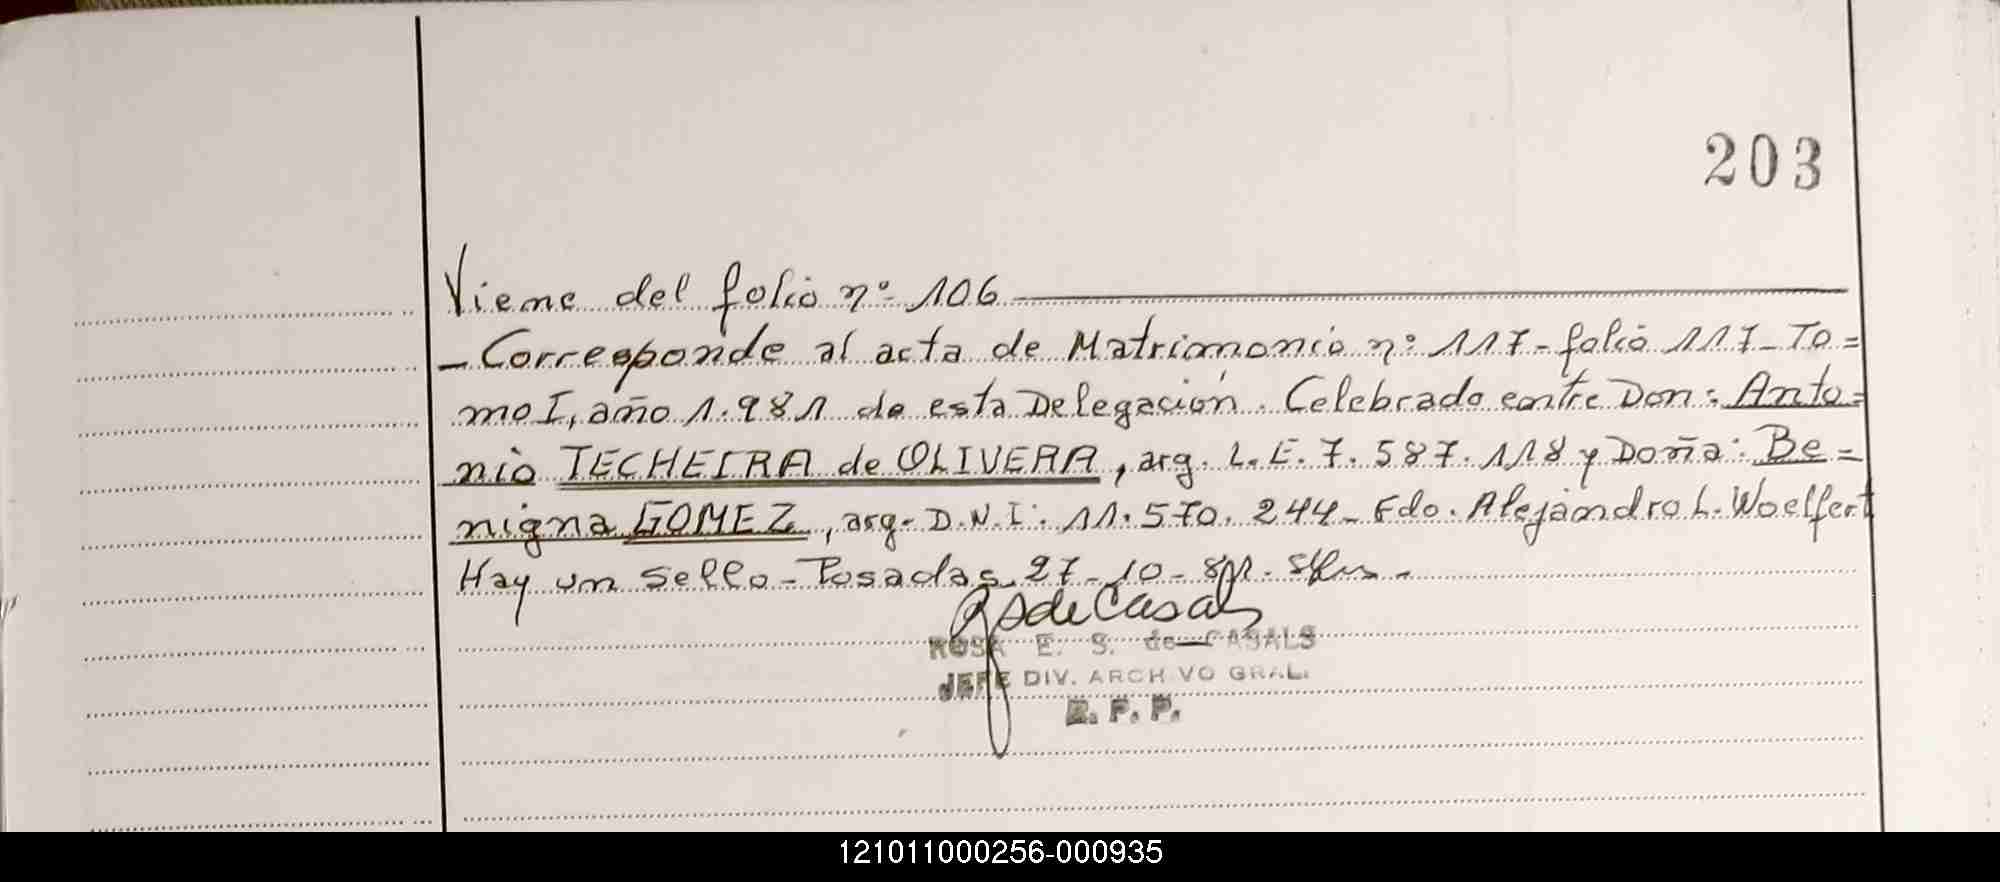 203
Viene del folio nº 106
- Corresponde al acta de Matrimonio nº 117 - folio 117 - To=
mo I, año 1.981 de esta Delegación. Celebrado entre Don: Anto=
nio TECHEIRA de OLIVERA, arg. L.E. 7.587.118 y Doña: Be=
nigna GOMEZ, arg. D.N.I. 11.570.244 - Fdo. Alejandro L. Woelfert
Hay un sello - Posadas, 27-10-81.
ROSA E. S. de CASALS
JEFE DIV. ARCHIVO GRAL.
R. P. P.
121011000256-000935